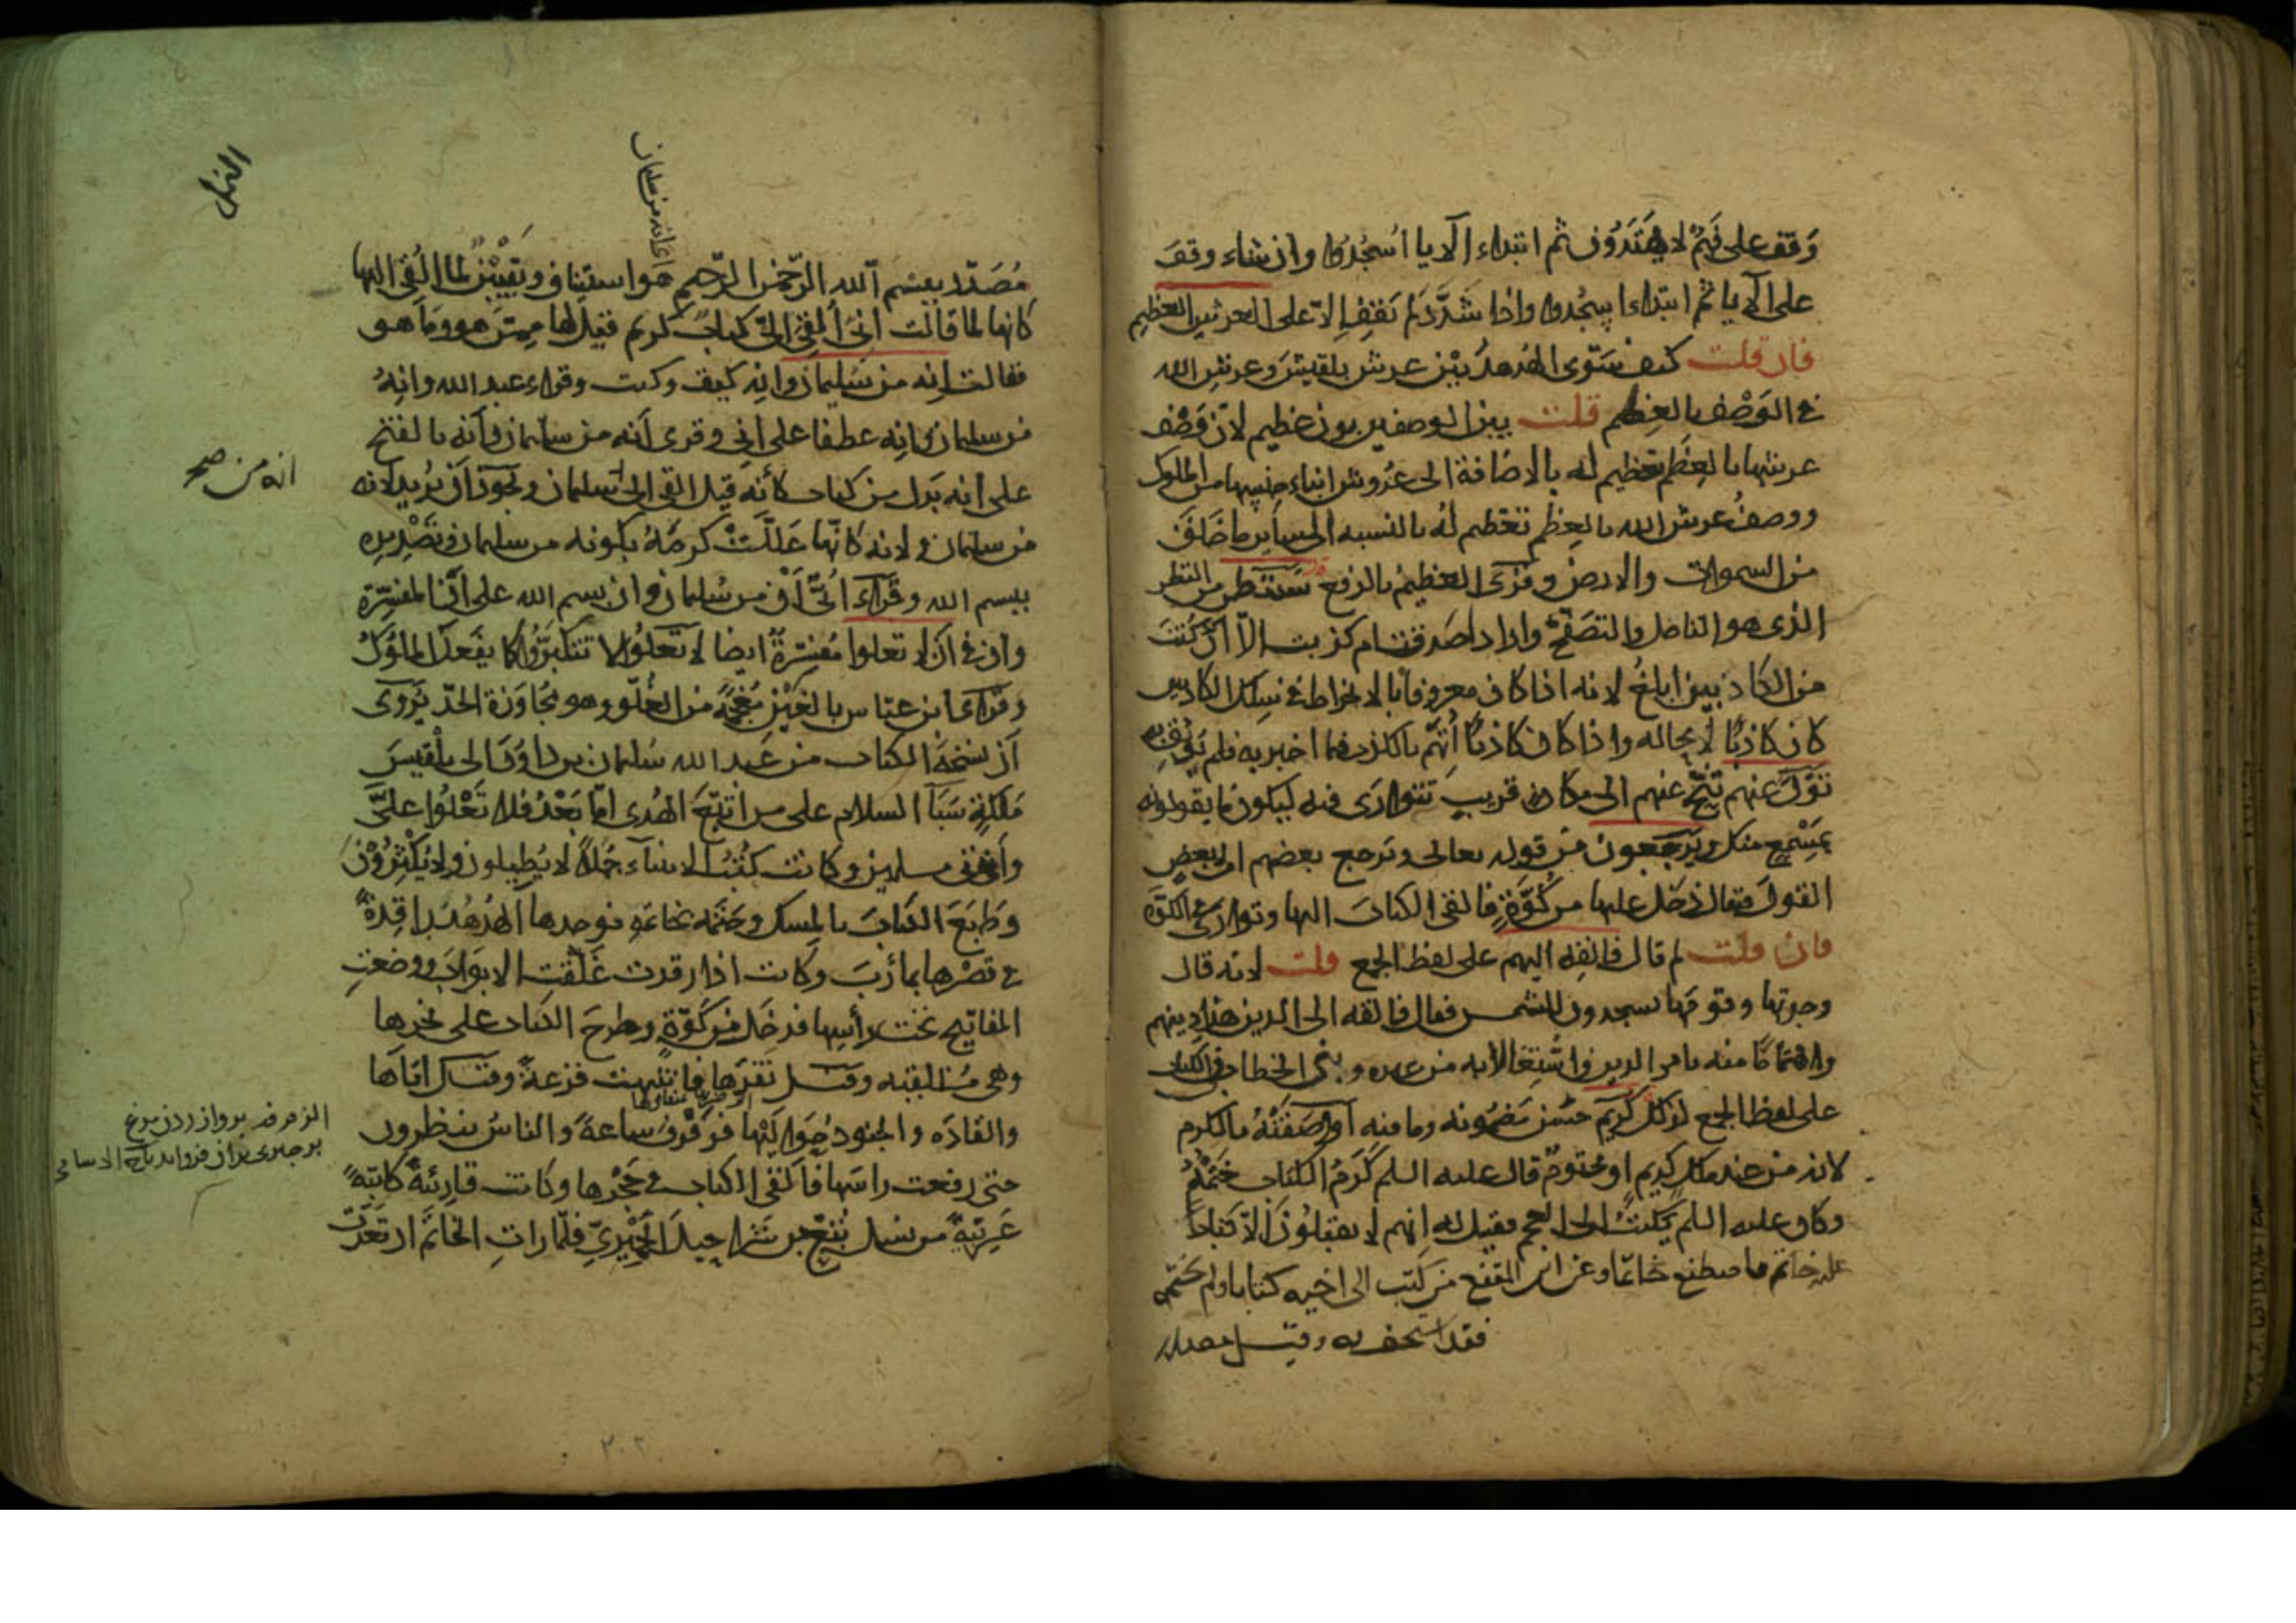 وَقف على فهُم لا يهتَدُون ثم ابتداء الا يا اسْجُدُوا وان شاء وقفَ
على الا يا ثم ابتداء اسجُدوا واذا شَدَّدَ لم يَقفْ الّا على العرش العظيم
فان قلت كيف سَوّى الهُدهدُ بيْن عرش بلقيسَ وعرش الله
فى الوَصْف بالعِظم قلت بين الوصفين بون عظيم لانّ وَصْف
عرشها بالعِظَم تعظيم له بالاضافة الى عُرُوش ابناء جنسها من الملوك
ووصفُ عرش الله بالعِظم تعظيم له بالنسبه الى ساير ما خَلقَ
من السموات والارض وقرى العظيمُ بالرفع سَننظر من النظر
الذى هو التامل والتصَفّح واراد اصدقت ام كذبت الّا انّ كُنتَ
من الكاذبين ابلغُ لانه اذا كان معروفا بالانخراط فى سلك الكاذبين
كان كاذبًا لا محاله واذا كان كاذبًا اتُّهم بالكذب فيما اخبر به فلم يُوثق به
تَوَلّ عنهم تَنَحّ عنهم الى مكان قريب تتوارَى فيه ليكون ما يقولونه
بمَسْمع منك ويَرجعون من قوله تعالى يرجع بعضهم الى بعضٍ
القولَ فيقال دَخل عليها من كُوَّةٍ فالقى الكتابَ اليها وتوارَى فى الكوّة
فان قلت لم قال فالقِه اليهم على لفظ الجمع قلت لانه قال
وجدتها وقومَها يسجدون للشمس فقال فالقه الى الذين هذا دينهم
واهتمامًا منه بامر الدين واشتغالا به عن غيره وبنى الخطاب فى الكتاب
على لفظ الجمع لذلك كَريم حسَن مَضمُونه وما فيه اَو وَصَفَتْهُ بالكرم
لانه من عند ملك كريم او مختومٌ قال عليه السلم كَرَمُ الكتاب خَتْمُهُ
وكان عليه السلم يكتبُ الى العجم فقيل له انهم لا يقبلُونَ الّا كتابًا
عليه خاتم فاصطنع خاتمًا وعن ابن المقفع من كَتب الى اخيه كتابا ولم يختمه
فقد استخف به وقيل مصدر
النمل
مُصَدّر ببسْم الله الرّحمن الرّحيم هو استيناف وتبيين لما اُلقى اليها
كانها لما قالت انى اُلقىَ الىّ كتابٌ كريم قيل لها مِمّن هو وما هو
فقالت اِنه من سُليمان وانه كيتَ وكيت وقراء عبد الله وانهُ
من سليمان وانِه عطفا على انى وقرى اَنه من سليمان واَنه بالفتح
على انه بَدل من كتاب كأنه قيل القى الىّ انه من سليمان ويجوز ان يُريد لانه
من سليمان ولانه كانها عَلّلَتْ كَرمَهُ بكونه من سليمان وتَصْديرِه
ببسم الله وقَراَ اُبَىّ اَنْ من سُليمان وان بسم الله على اَن المفسّرة
وان فى اَن لا تعلوا مُفسّرةٌ ايضا لا تعلُوا لا تتكبَّرُوا كما يفعَل الملوكُ
وقَراَ ابن عبّاس بالغَيْن مُعجَمةً من الغُلُوّ وهو مُجاوَزة الحدّ يُروى
اَن نسخَةَ الكتاب من عبد الله سُليمان بن داوُدَ الى بلقيسَ
مَلكةِ سَبَأ السلام على من اتبَعَ الهُدى امّا بَعْدُ فلا تَعْلُوا علىَّ
وأتونى مسلمين وكانت كُتُبُ الانبياء جُمَلًا لا يُطيلون ولا يُكْثِرُوْنَ
وطَبعَ الكتابَ بالمِسك وختمه بخاتمه فوجدها الهُدهُدُ راقِدةً
فى قصْرها بمأربَ وكانت اذا رقدت غَلّقت الابوابَ ووضعتِ
المفاتيح تحت رأسِها فدخَل من كَوّةٍ وطرحَ الكتاب على نحرها
وهى مُستلقيه وقيل نَقَرَها فانتبهت فزعةً وقيل اتاها
والقادَه والجنود حَوالَيْها فرَفْرفَ ساعةً والناسُ ينظرون
حتى رفعت راسَها فاَلقى الكتاب فى حَجْرها وكانت قارِئةً كاتبةً
عَربيّةً من نسل تُبّع بن شَراحيلَ الحميريّ فلمّا رات الخاتَم ارتعدَتْ
انه من صح